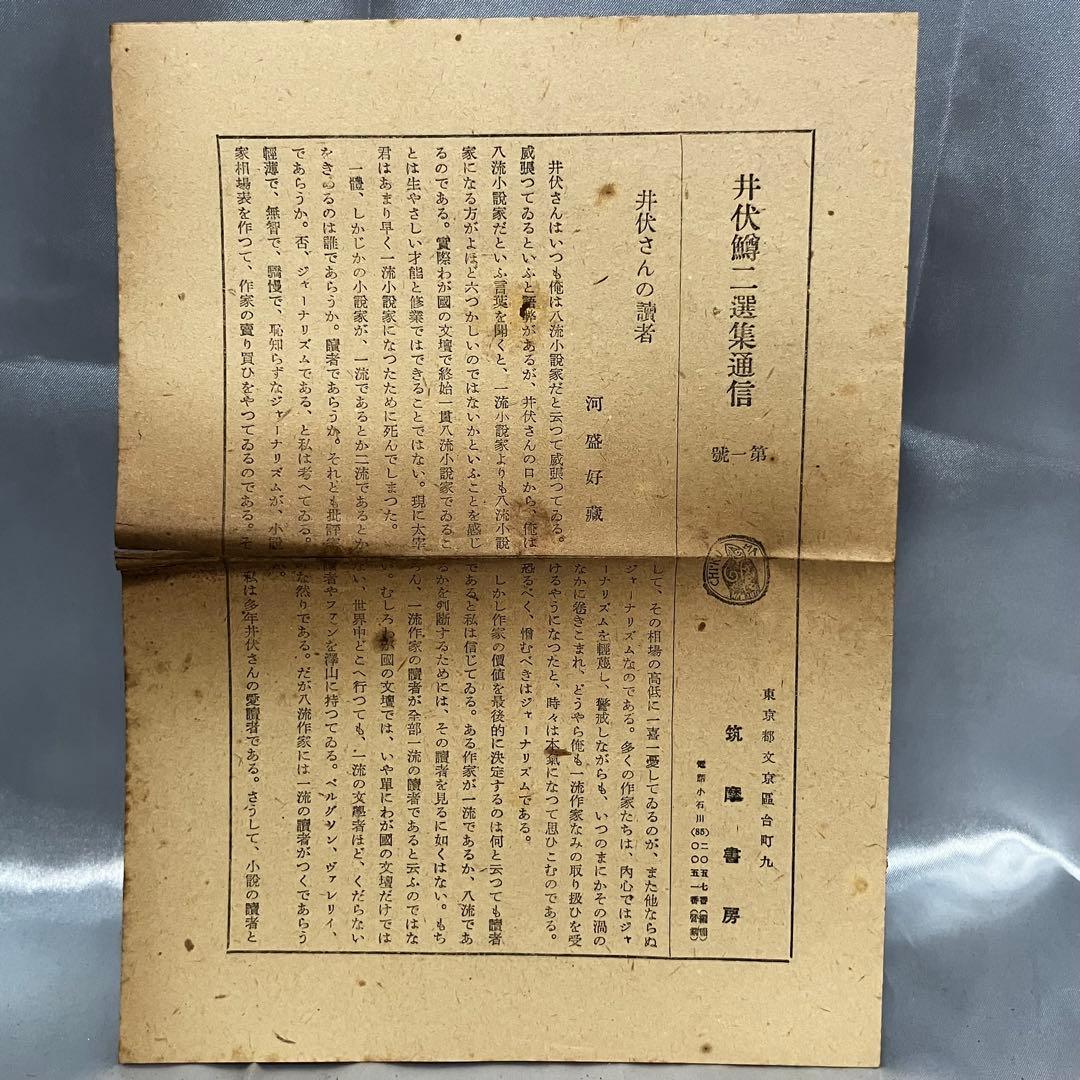 井伏鱒二選集通信 第一號
東京都文京區台町九
筑摩書房
電話小石川(85)
CHIKUMA
井伏さんの讀者
河盛好藏
井伏さんはいつも俺は八流小説家だと云つて威張つてゐる。
威張つてゐるといふと語弊があるが、井伏さんの口から、俺は
八流小説家だといふ言葉を聞くと、一流小説家よりも八流小説
家になる方がよほど六つかしいのではないかといふことを感じ
るのである。實際わが國の文壇で終始一貫八流小説家でゐるこ
とは生やさしい才能と修業ではできることではない。現に太宰
君はあまり早く一流小説家になつたために死んでしまつた。
一體、しかじかの小説家が、一流であるとか二流であるとか
をきめるのは誰であらうか。讀者であらうか。それとも批評家
であらうか。否、ジャーナリズムである、と私は考へてゐる。
輕薄で、無智で、驕慢で、恥知らずなジャーナリズムが、小説
家相場表を作つて、作家の賣り買ひをやつてゐるのである。そ
して、その相場の高低に一喜一憂してゐるのが、また他ならぬ
ジャーナリズムなのである。多くの作家たちは、内心ではジャ
ーナリズムを輕蔑し、警戒しながらも、いつのまにかその渦の
なかに卷きこまれ、どうやら俺も一流作家なみの取り扱ひを受
けるやうになつたと、時々は本氣になつて思ひこむのである。
恐るべく、憎むべきはジャーナリズムである。
しかし作家の價値を最後的に決定するのは何と云つても讀者
であると私は信じてゐる。ある作家が一流であるか、八流であ
るかを判斷するためには、その讀者を見るに如くはない。もち
ろん、一流作家の讀者が全部一流の讀者であると云ふのではな
い。むしろわが國の文壇では、いや單にわが國の文壇だけでは
ない、世界中どこへ行つても、一流の文學者ほど、くだらない
讀者やファンを澤山に持つてゐる。ベルグソン、ヴァレリイ、
な然りである。だが八流作家には一流の讀者がつくであらう
か。
私は多年井伏さんの愛讀者である。さうして、小説の讀者と